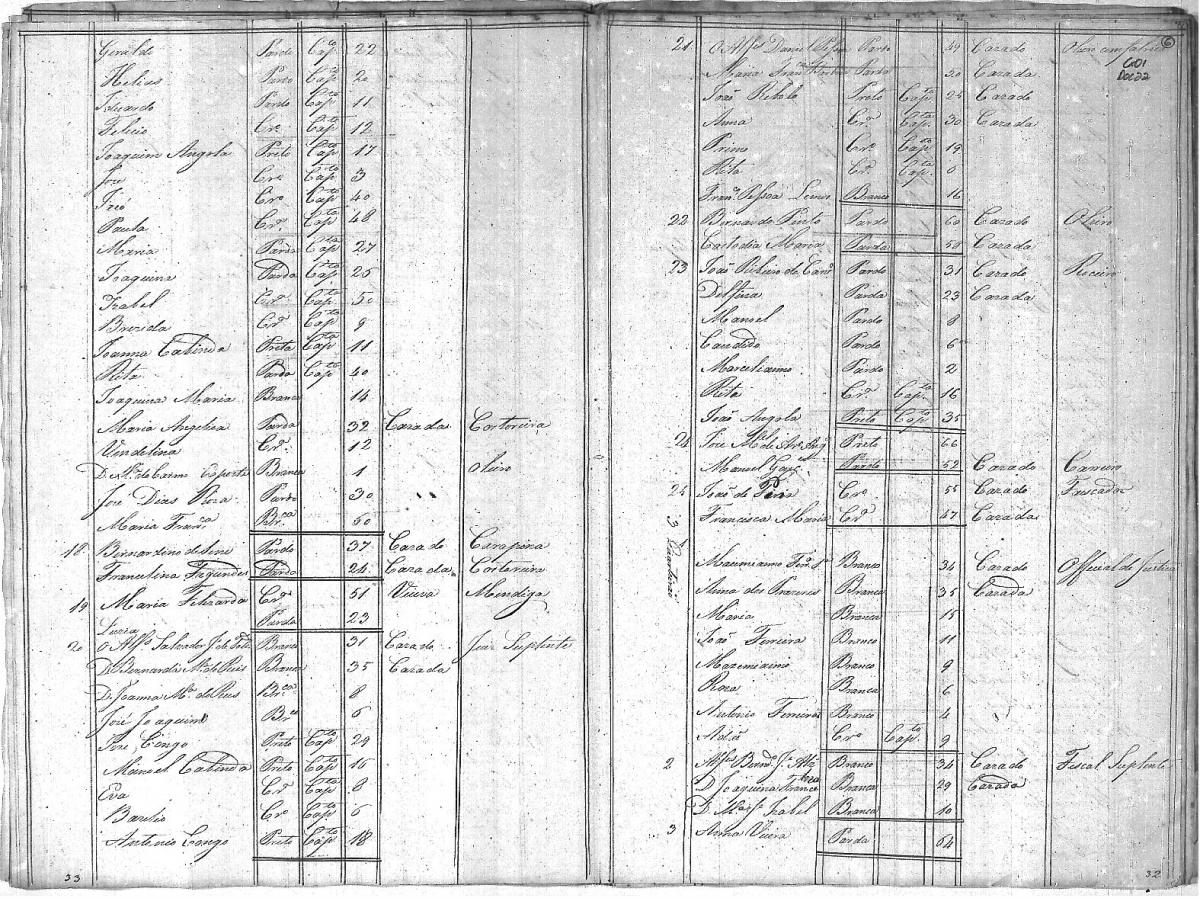 Geraldo Pardo Cap^to 22
Helias Pardo Cap^to 20
Eduardo Pardo Cap^to 11
Felicio Cr.º Cap^to 12
Joaquim Angola Preto Cap^to 17
José Cr.º Cap^to 3
Cr.º Cap^to 40
Paula Cr.ª Cap^ta 48
Maria Parda Cap^ta 27
Joaquina Parda Cap^ta 25
Izabel Cr.ª Cap^ta 50
Brizida Cr.ª Cap^ta 9
Joanna Cabinda Preta Cap^ta 11
Rita Parda Cap^ta 40
Joaquina Maria Branca 14
Maria Angelica Parda 32 Cazada Costoreira
Vindelina Cr.ª 12
D. M.ª do Carmo Branca 1 Oleiro
Jose Dias Roza Pardo 30
Maria Fran^ca Br.^ca 50
18 Bernardino de Sene Pardo 37 Cazado Carapina
Francelina Fagundes Parda 24 Cazada Costoreira
19 Maria Felizarda Cr.ª 51 Viuva Mendiga
Luzia Parda 23
20 O Alf.^s Salvador J.^e de Branco 31 Cazado Juiz Suplente
D. Bernarda M.ª de Reis Branca 35 Cazada
D. Joanna M.ª de Reis Br.^ca 8
José Joaquim Br.^co 6
José Congo Preto Cap^to 29
Manoel Cabinda Preto Cap^to 16
Eva Cr.ª Cap^ta 8
Bazilio Cr.º Cap^to 6
Antonio Congo Preto Cap^to 18
33
6
G01
Doc 22
21 O Alf.^s Daniel Pessoa Pardo 49 Cazado
Maria Fran^ca Parda 30 Cazada
João Rebolo Preto Cap^to 25 Cazado
Anna Cr.ª Cap^ta 30 Cazada
Primo Cr.º Cap^to 19
Rita Cr.ª Cap^ta 6
Fran.^co Pessoa Lemos Branco 16
22 Bernardo Pinto Pardo 60 Cazado Oleiro
Custodia Maria Parda 50 Cazada
23 João Ribeiro de Pardo 31 Cazado Roceiro
Delfina Parda 23 Cazada
Manoel Pardo 8
Candido Pardo 6
Marcelianno Pardo 2
Rita Cr.ª Cap^ta 16
João Angola Preto Cap^to 35
24 Jose M.^el de Preto 66
Manoel Pardo 52 Cazado Carreiro
25 João de Faria Cr.º 55 Cazado Pescador
Francisca Maria Cr.ª 47 Cazada
3 Quarteirão
Maximianno Branco 34 Cazado Official de Justiça
Anna dos Prazeres Branca 35 Cazada
Maria Branca 15
João Ferreira Branco 11
Maximianno Branco 9
Roza Branca 6
Antonio Ferreira Branco 4
Adão Cr.º Cap^to 9
2 Alf.^s Bern.^do J.^e Branco 34 Cazado Fiscal Suplente
D. Joaquina Branca 29 Cazada
D. M.ª Izabel Branca 10
3 Anna Vieira Parda 64
32